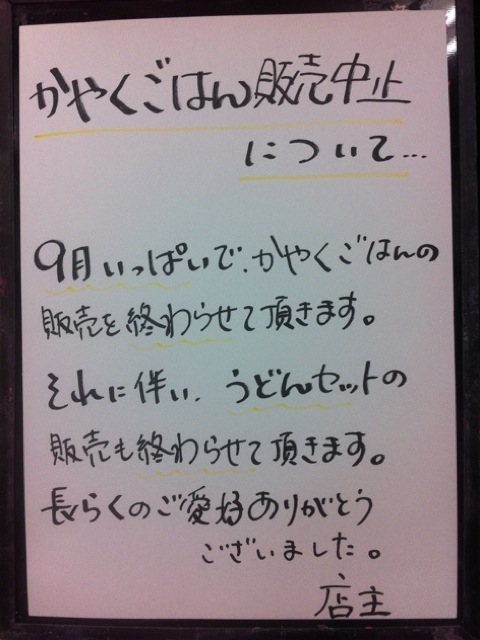 かやくごはん販売中止
について…
9月いっぱいで、かやくごはんの
販売を終わらせて頂きます。
それに伴い、うどんセットの
販売も終わらせて頂きます。
長らくのご愛好ありがとう
ございました。
店主